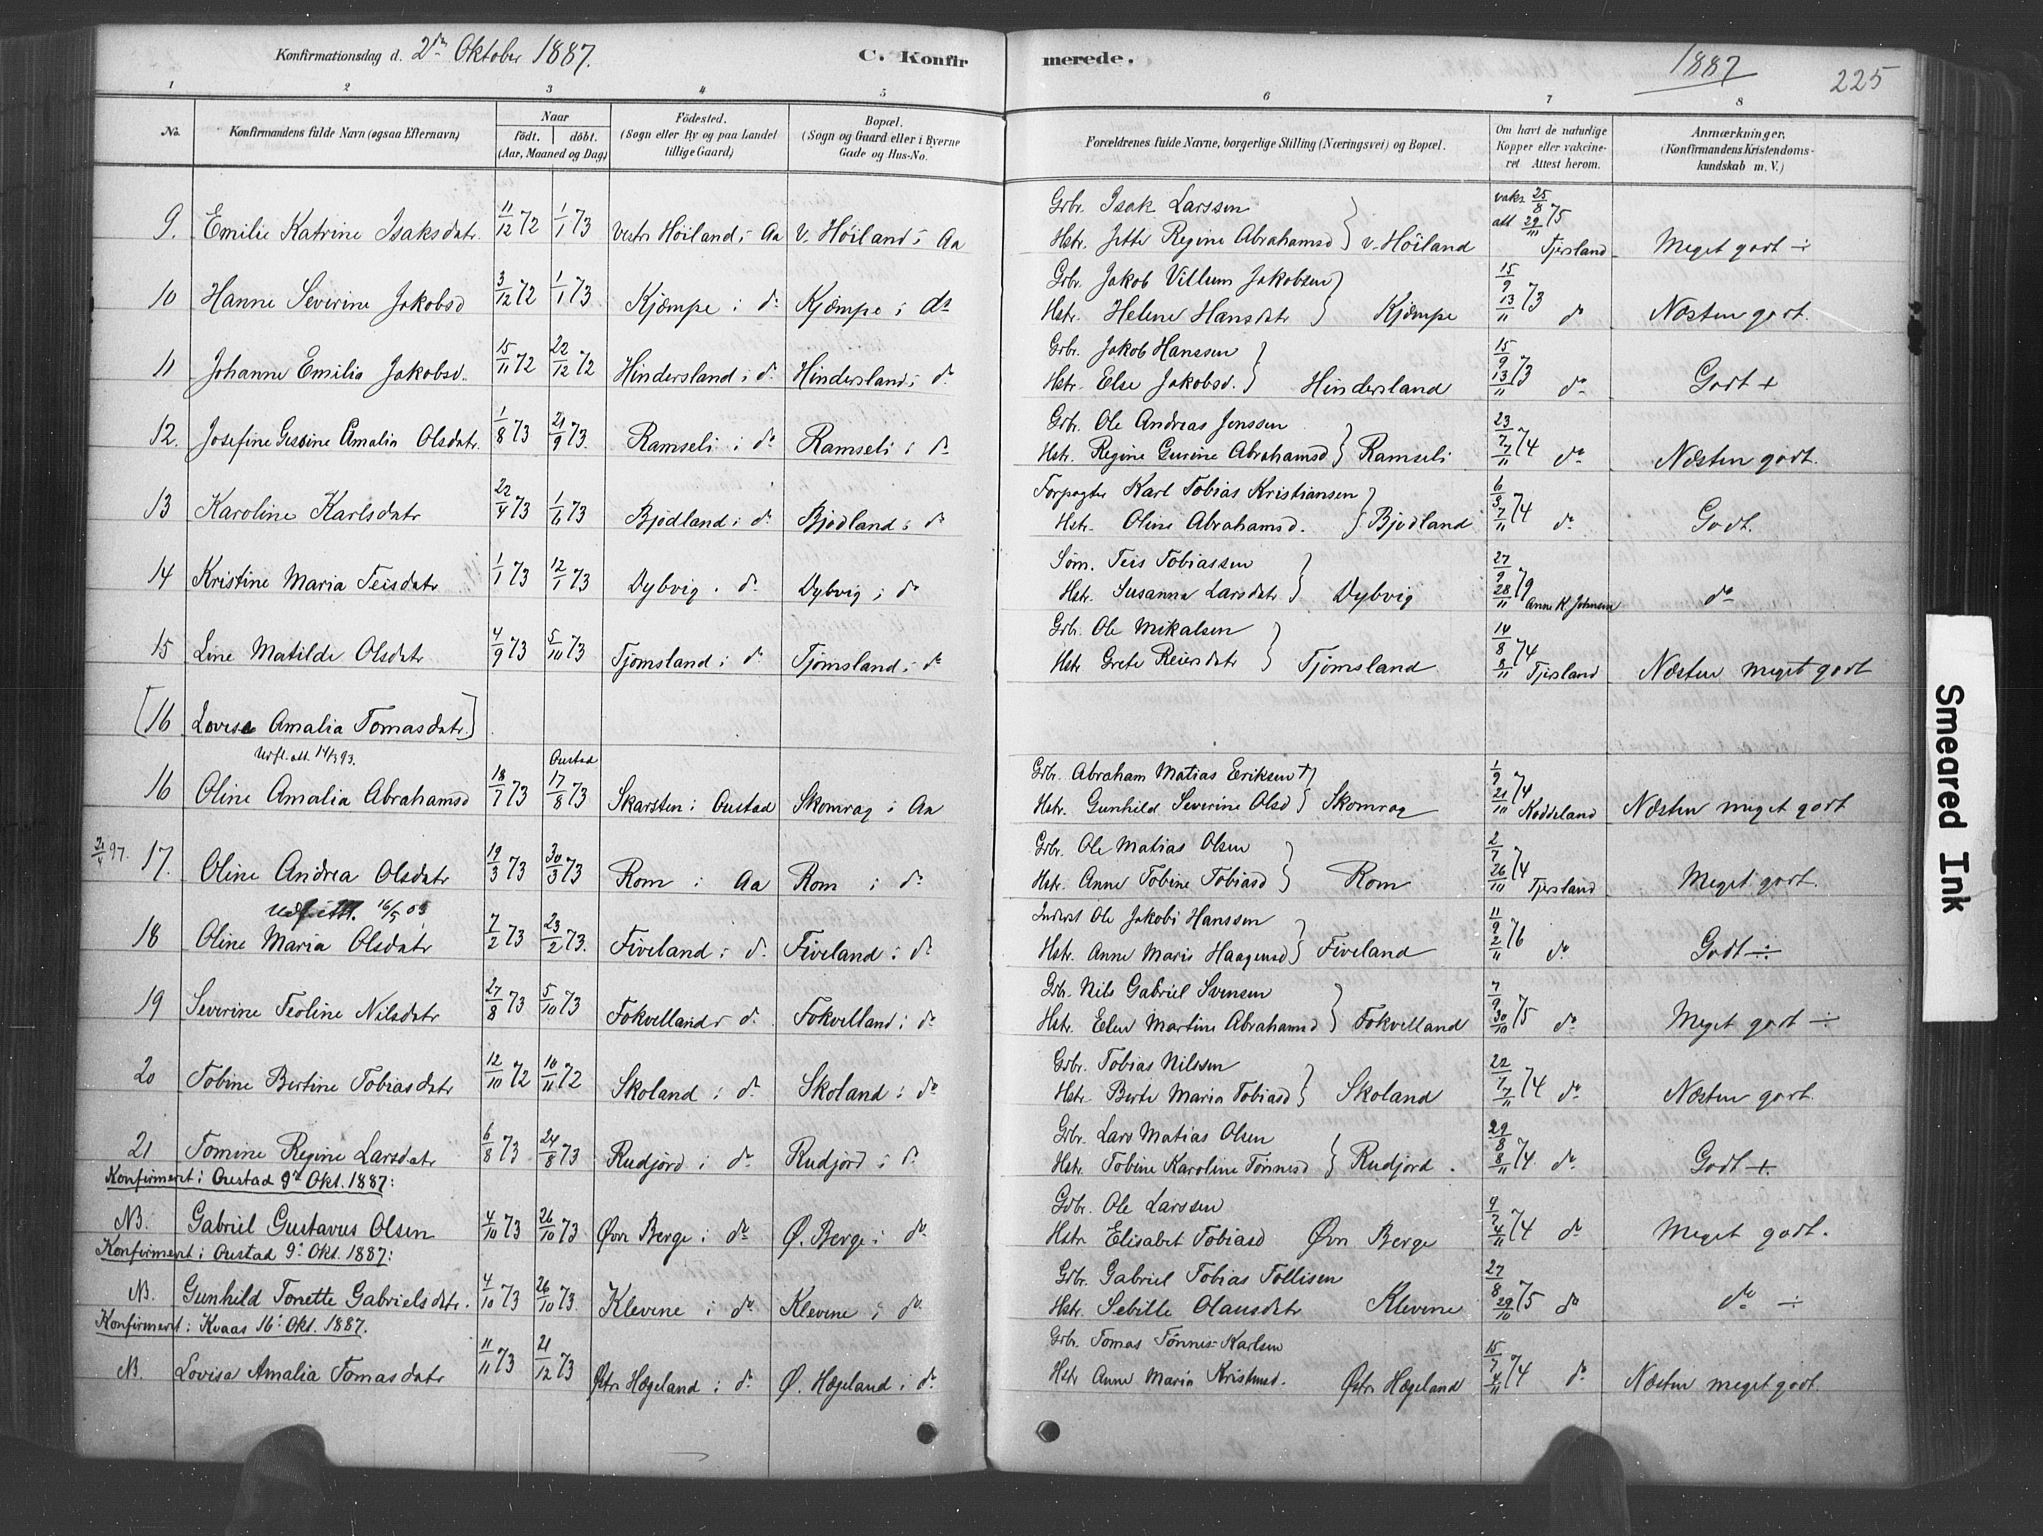 Konfirmationsdag d. 2den Oktober 1887. C. Konfirmerede. 1887 225
1 2 3 4 5 6 7 8
No. Konfirmandens fulde Navn (ogsaa Efternavn) Naar født. døbt. (Aar, Maaned og Dag) Födested. (Sogn eller By og paa Landet tillige Gaard) Bopæl. (Sogn og Gaard eller i Byerne Gade og Hus-No. Forældrenes fulde Navne, borgerlige Stilling (Næringsvei) og Bopæl. Om havt de naturlige Kopper eller vakcineret Attest herom. Anmærkninger. (Konfirmandens Kristendomskundskab m. V.)
9. Emilie Katrine Isaksdatr. 11/12 72 1/1 73 Vestr Höiland i Aa V. Höiland i Aa Grbr. Isak Larssen Hstr. Jette Regine Abrahamsd } V. Höiland vaks 25/8 att 29/11 75 Tjersland Meget godt ÷
10 Hanne Severine Jakobsd 3/12 72 1/1 73 Kjæmpe i do Kjæmpe i do Grbr. Jakob Villum Jakobsen Hstr. Helene Hansdatr } Kjæmpe 15/9 13/11 73 do Næsten godt.
11 Johanne Emilie Jakobsd. 15/11 72 22/12 72 Hindersland i do Hindersland i do Grbr. Jakob Hanssen Hstr. Else Jakobsd. } Hindersland 15/9 13/11 73 do Godt +
12. Josefine Gessine Amalia Olsdatr. 1/8 73 21/9 73. Ramseli i do Ramseli i do Grbr. Ole Andreas Jenssen Hstr. Regine Gurine Abrahamsd } Ramseli 23/7 7/11 74 do Næsten godt.
13 Karoline Karlsdatr 22/4 73 1/6 73 Bjodland i do Bjodland i do Forpagter Karl Tobias Kristiansen Hstr. Oline Abrahamsd. } Bjodland 6/9 7/11 74 do Godt.
14 Kristine Maria Teisdatr 1/1 73 12/1 73 Dybvig i do Dybvig i do Søm. Teis Tobiassen Hstr. Susanna Larsdatr } Dybvig 27/9 28/11 79 Anne K. Johnsen do
15 Line Matilde Olsdatr 4/9 73 5/10 73 Tjomsland i do Tjomsland i do Grbr. Ole Mikalsen Hstr Grete Reiersdatr } Tjomsland 14/8 8/11 74 Tjersland Næsten meget godt
[16 Lovise Amalia Tomasdatr.]
Udfl. att. 14/3 93.
16 Oline Amalia Abrahamsd 18/7 73 Oustad 17/8 73 Skarsten i Oustad Skomrag i Aa Grbr. Abraham Matias Eriksen + Hstr. Gunhild Severine Olsd } Skomrag 1/9 21/10 74 Koddeland Næsten meget godt
21/4 97. 17. Oline Andrea Olsdatr 19/3 73 30/3 73 Rom i Aa Rom i do Grbr. Ole Matias Olsen Hstr. Anne Tobine Tobiasd } Rom 2/7 26/10 74 Tjersland Meget godt.
16/5 03
18 Oline Maria Olsdatr 7/2 73 23/2 73. Fiveland i do Fiveland i do Inderst Ole Jakobi Hanssen Hstr. Anne Marie Haagensd } Fiveland 11/9 2/11 76 do Godt ÷
19 Severine Teoline Nilsdatr 27/8 73 5/10 73 Fokvelland i do Fokvelland i do Grbr. Nils Gabriel Svensen Hstr. Elen Martine Abrahamsd } Fokvelland 7/9 30/10 75 do Meget godt ÷
20 Tobine Bertine Tobiasdatr 12/10 72 10/11 72 Skoland i do Skoland i do Grbr. Tobias Nilssen Hstr. Berte Maria Tobiasd } Skoland 22/7 7/11 74 do Næsten godt.
21 Tomine Regine Larsdatr 6/8 73 24/8 73 Rudjord i do Rudjord i do Grbr. Lars Matias Olsen Hstr. Tobine Karoline Tønnesd } Rudjord. 29/8 8/11 74. do Godt +
Konfirmeret i Oustad 9de Okt. 1887:
NB. Gabriel Gustavus Olsen 4/10 73 26/10 73 Øvr Berge i do Ø. Berge i do Grbr. Ole Larssen Hstr Elisabet Tobiasd Øvr Berge 9/7 4/11 74 do Meget godt.
Konfirmeret i Oustad 9de Okt. 1887:
NB. Gunhild Tonette Gabrielsdatr. 4/10 73 26/10 73. Klevene i do Klevene i do Grbr. Gabriel Tobias Tollisen Hstr. Sebille Olausdatr Klevene 27/8 29/10 75 do do ÷
Konfirmeret i Kvaas 16de Okt. 1887.
NB. Lovise Amalia Tomasdatr 11/11 73 21/12 73 Østr Hægeland i do Ø. Hægeland i do Grbr. Tomas Tönnes Karlsen Hstr Anne Maria Kristensd. Østr Hægeland 15/7 4/11 74 do Næsten meget godt.
Smeared Ink